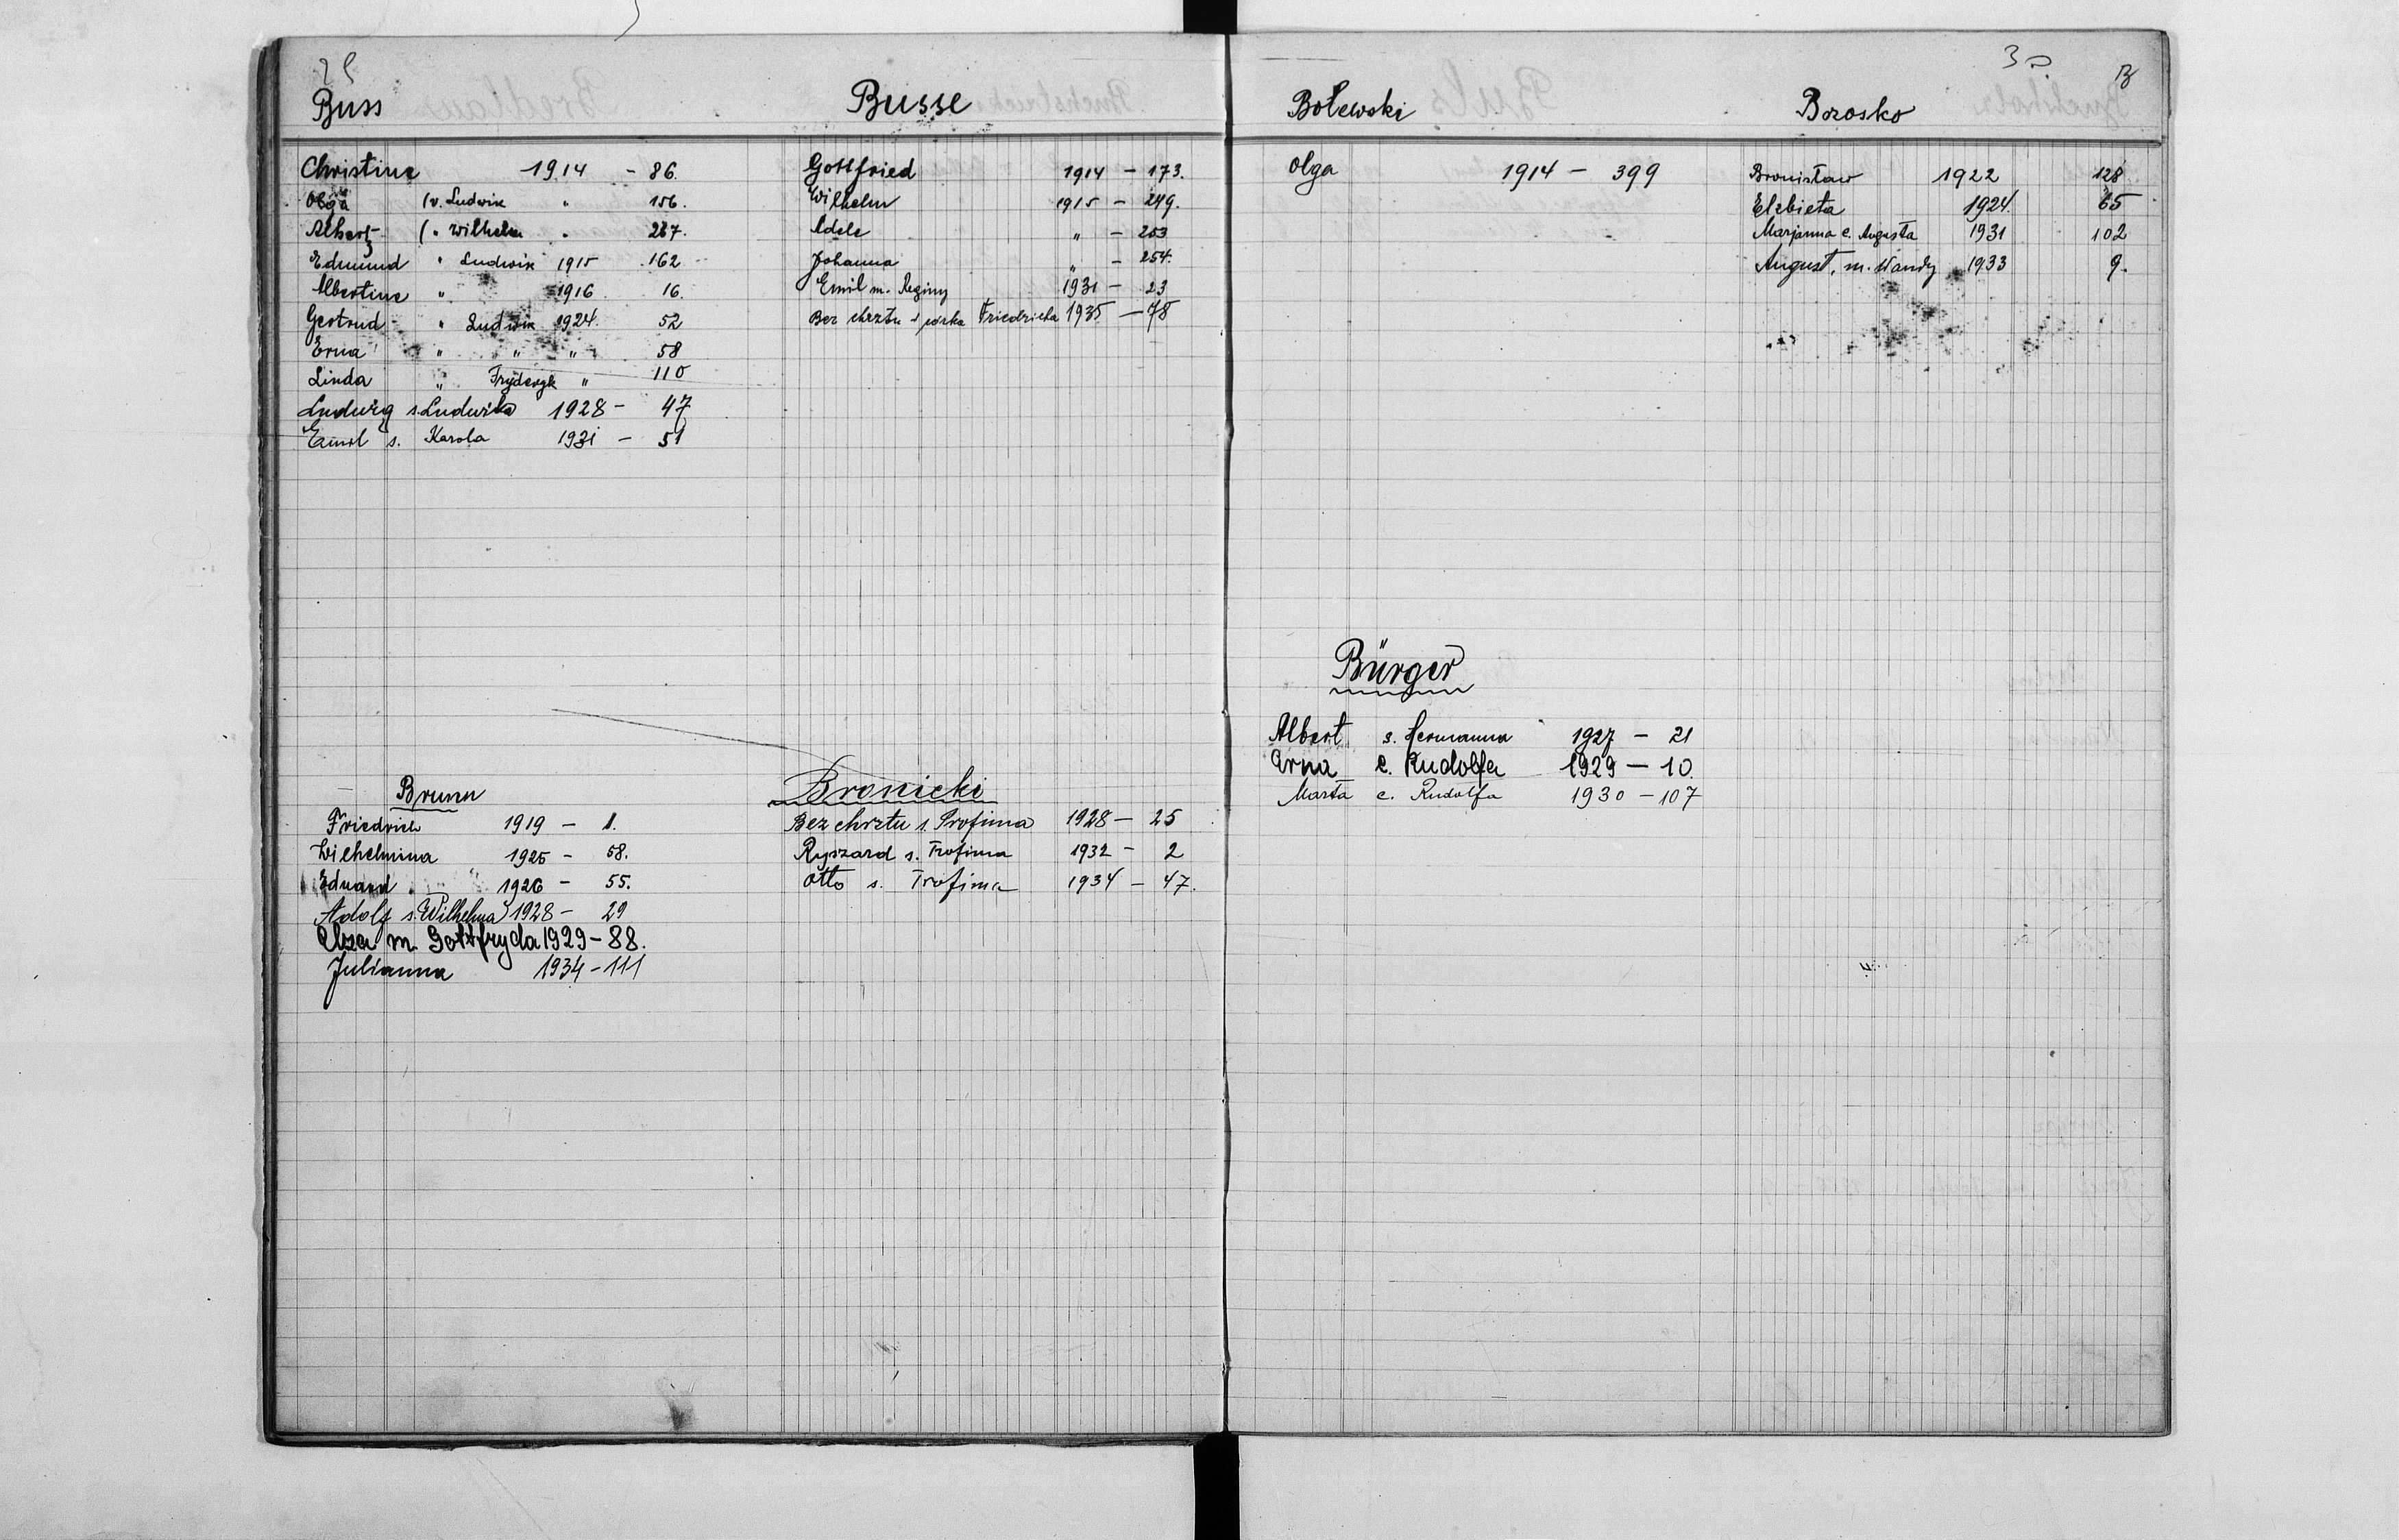 Buss
Christine 1914 - 86.
Olga (v. Ludwik " 156.
Albert (" Wilhelm " 237.
Edmund " Ludwik 1915 162
Albertine " 1916 16.
Gertrud " Ludwik 1924. 52
Erna " " " 58
Linda " Fryderyk " 110
Ludwig s. Ludwika 1928 - 47
Emil s. Karola 1931 - 51
Brunn
Friedrich 1919 - 1.
Wilhelmina 1925 - 58.
Eduard " 1926 - 55.
Adolf s. Wilhelma 1928 - 29
Elza m. Gottfryda 1929 - 88.
Julianna 1934 - 111
Busse
Gottfried 1914 - 173.
Wilhelm 1915 - 249.
Adele " - 253
Johanna " - 254.
Emil m. Reginy 1931 - 23
Bez chrztu córka Friedricha 1935 - 78
Bronicki
Bez chrztu s. Trofima 1928 - 25
Ryszard s. Trofima 1932 - 2
Otto s. Trofima 1934 - 47.
30
B
Bolewski
Olga 1914 - 399
Bürger
Albert s. Hermanna 1927 - 21
Erna c. Rudolfa 1929 - 10.
Marta c. Rudolfa 1930 - 107
Brosko
Bronisław 1922 128
Elzbieta 1924. 65
Marjanna c. Augusta 1931 102
August, m. Wandy 1933 9.